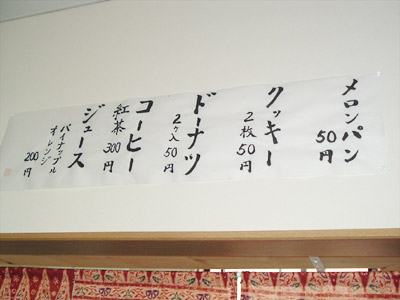 メロンパン
50円
クッキー
2枚50円
ドーナツ
2ヶ入50円
コーヒー
紅茶 300円
ジュース
パイナップル
オレンジ
200円